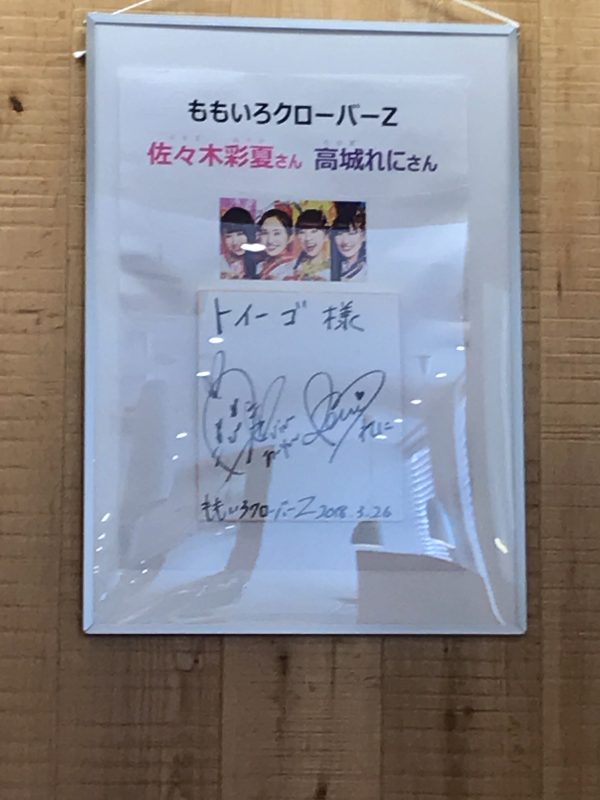 ももいろクローバーZ
佐々木彩夏さん 高城れにさん
トイーゴ 様
れに
ももいろクローバーZ 2018.3.26